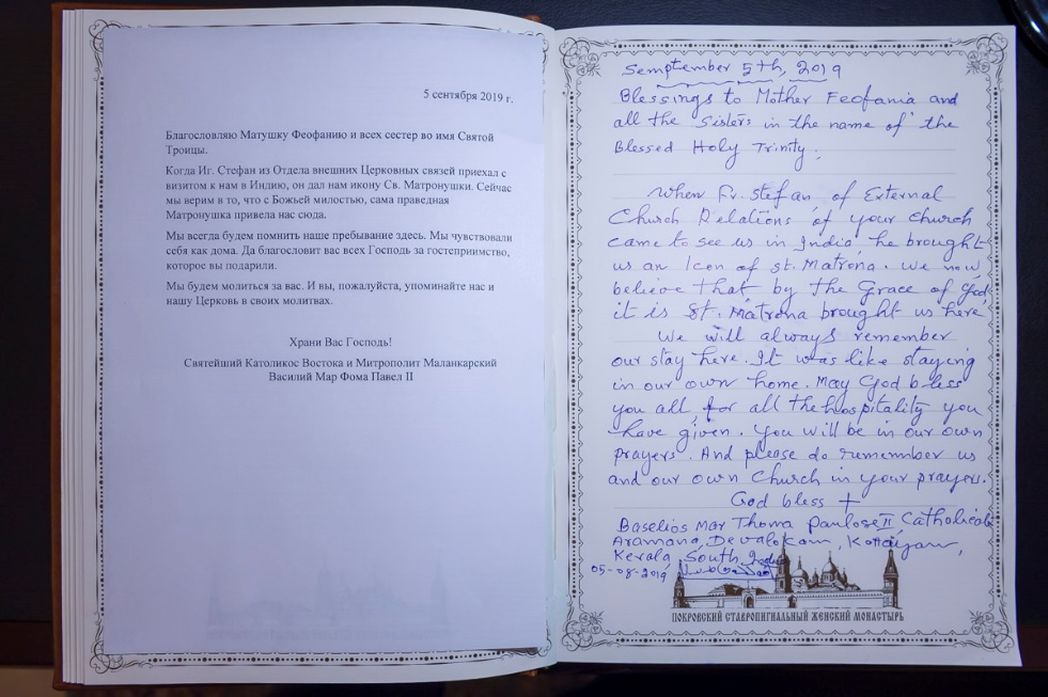 5 сентября 2019 г.
Благословляю Матушку Феофанию и всех сестер во имя Святой
Троицы.
Когда Иг. Стефан из Отдела внешних Церковных связей приехал с
визитом к нам в Индию, он дал нам икону Св. Матронушки. Сейчас
мы верим в то, что с Божьей милостью, сама праведная
Матронушка привела нас сюда.
Мы всегда будем помнить наше пребывание здесь. Мы чувствовали
себя как дома. Да благословит вас всех Господь за гостеприимство,
которое вы подарили.
Мы будем молиться за вас. И вы, пожалуйста, упоминайте нас и
нашу Церковь в своих молитвах.
Храни Вас Господь!
Святейший Католикос Востока и Митрополит Маланкарский
Василий Мар Фома Павел II
Semptember 5th, 2019
Blessings to Mother Feofania and
all the Sisters in the name of the
Blessed Holy Trinity.
When Fr. Stefan of External
Church Relations of your church
came to see us in India he brought
us an Icon of St. Matrona. We now
believe that by the Grace of God,
it is St. Matrona brought us here
We will always remember
our stay here. It was like staying
in our own home. May God bless
you all, for all the hospitality you
have given. You will be in our own
prayers. And please do remember us
and our own Church in your prayers.
God bless +
Baselios Mar Thoma Paulose II, Catholicate
Aramana, Devalokam, Kottayam,
Kerala, South India
05-08-2019
ПОКРОВСКИЙ СТАВРОПИГИАЛЬНЫЙ ЖЕНСКИЙ МОНАСТЫРЬ